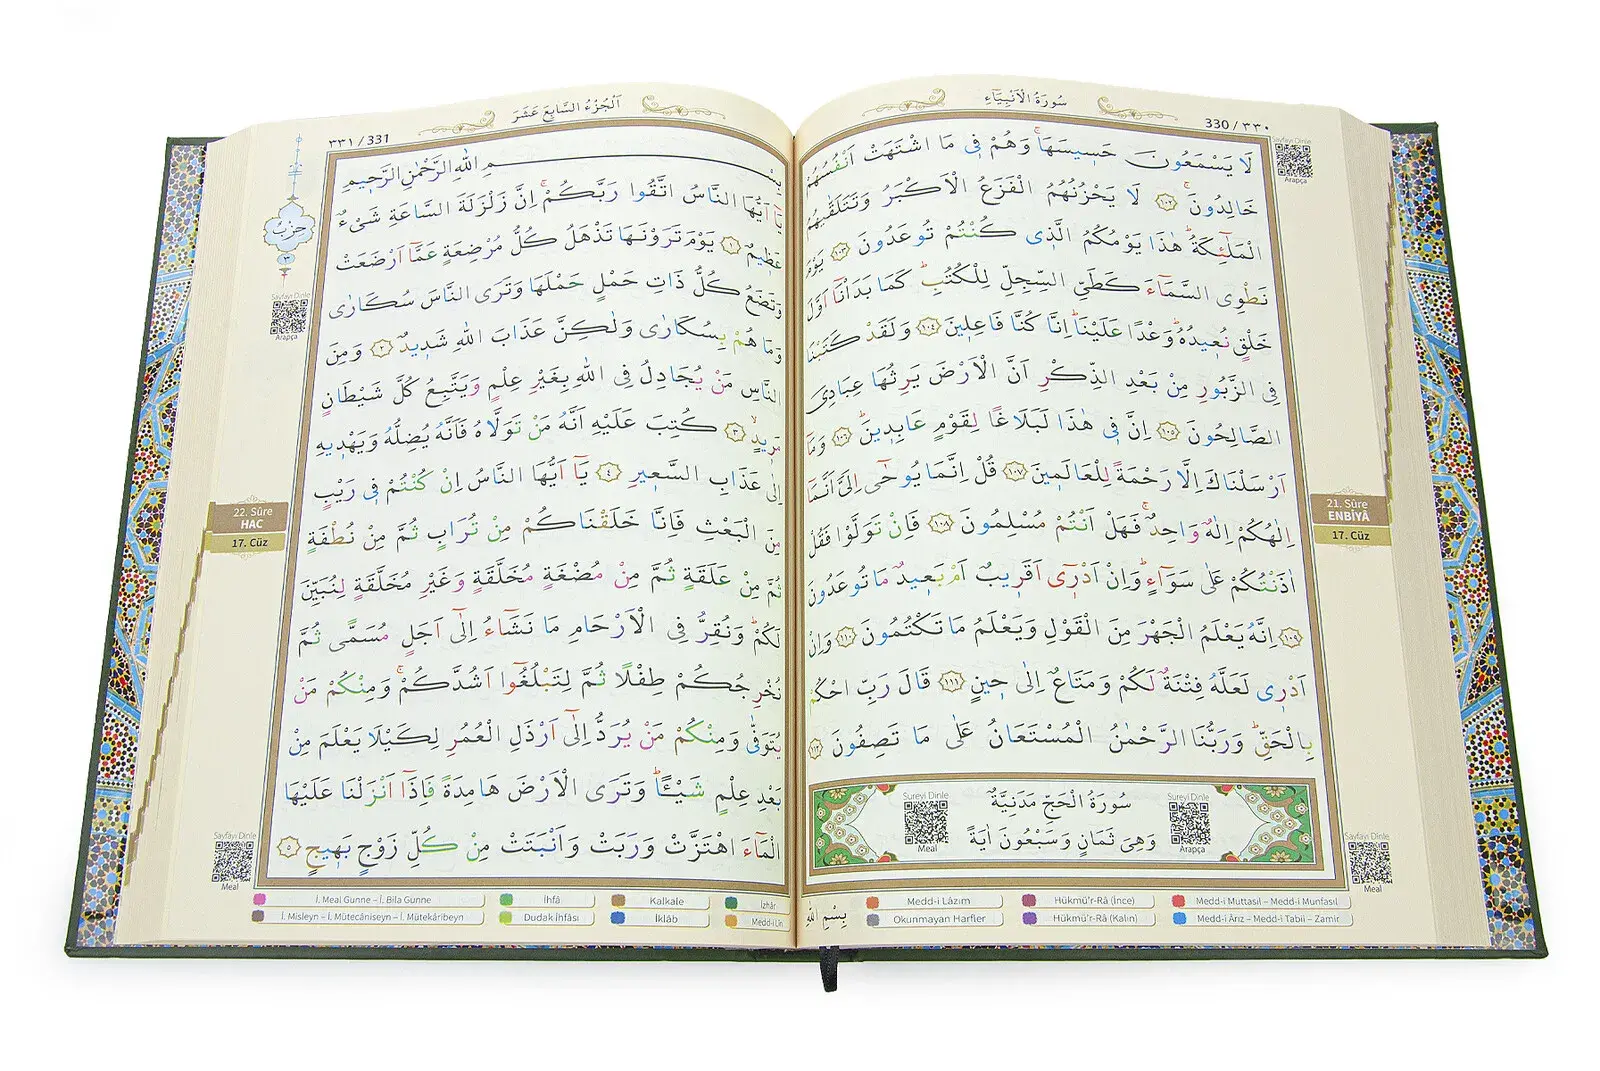 سُورَةُ الْاَنْبِيَاءِ
330 / ٣٣٠
لَا يَسْمَعُونَ حَسِيسَهَاۚ وَهُمْ فٖى مَا اشْتَهَتْ اَنْفُسُهُمْ
خَالِدُونَۚ ﴿١٠٢﴾ لَا يَحْزُنُهُمُ الْفَزَعُ الْاَكْبَرُ وَتَتَلَقّٰيهُمُ
الْمَلٰٓئِكَةُؕ هٰذَا يَوْمُكُمُ الَّذٖى كُنْتُمْ تُوعَدُونَ ﴿١٠٣﴾ يَوْمَ
نَطْوِى السَّمَٓاءَ كَطَىِّ السِّجِلِّ لِلْكُتُبِؕ كَمَا بَدَأْنَٓا اَوَّلَ
خَلْقٍ نُعٖيدُهُؕ وَعْدًا عَلَيْنَاؕ اِنَّا كُنَّا فَاعِلٖينَ ﴿١٠٤﴾ وَلَقَدْ كَتَبْنَا
فِى الزَّبُورِ مِنْ بَعْدِ الذِّكْرِ اَنَّ الْاَرْضَ يَرِثُهَا عِبَادِىَ
الصَّالِحُونَ ﴿١٠٥﴾ اِنَّ فٖى هٰذَا لَبَلَاغًا لِقَوْمٍ عَابِدٖينَؕ ﴿١٠٦﴾ وَمَٓا
اَرْسَلْنَاكَ اِلَّا رَحْمَةً لِلْعَالَمٖينَ ﴿١٠٧﴾ قُلْ اِنَّمَا يُوحٰٓى اِلَىَّ اَنَّمَٓا
اِلٰهُكُمْ اِلٰهٌ وَاحِدٌۚ فَهَلْ اَنْتُمْ مُسْلِمُونَ ﴿١٠٨﴾ فَاِنْ تَوَلَّوْا فَقُلْ
اٰذَنْتُكُمْ عَلٰى سَوَٓاءٍؕ وَاِنْ اَدْرٖٓى اَقَرٖيبٌ اَمْ بَعٖيدٌ مَا تُوعَدُونَ
﴿١٠٩﴾ اِنَّهُ يَعْلَمُ الْجَهْرَ مِنَ الْقَوْلِ وَيَعْلَمُ مَا تَكْتُمُونَ ﴿١١٠﴾ وَاِنْ
اَدْرٖى لَعَلَّهُ فِتْنَةٌ لَكُمْ وَمَتَاعٌ اِلٰى حٖينٍ ﴿١١١﴾ قَالَ رَبِّ احْكُمْ
بِالْحَقِّؕ وَرَبُّنَا الرَّحْمٰنُ الْمُسْتَعَانُ عَلٰى مَا تَصِفُونَ ﴿١١٢﴾
سُورَةُ الْحَجِّ مَدَنِيَّةٌ
وَهِىَ ثَمَانٍ وَسَبْعُونَ اٰيَةً
Sureyi Dinle
Arapça
Sureyi Dinle
Meal
Sayfayı Dinle
Arapça
21. Sûre
ENBİYÂ
17. Cüz
Sayfayı Dinle
Meal
Medd-i Lâzım
Hükmü'r-Râ (İnce)
Medd-i Muttasıl – Medd-i Munfasıl
Okunmayan Harfler
Hükmü'r-Râ (Kalın)
Medd-i Ârız – Medd-i Tabiî – Zamir
بِسْمِ اللّٰهِ
اَلْجُزْءُ السَّابِعَ عَشَرَ
٣٣١ / 331
بِسْمِ اللّٰهِ الرَّحْمٰنِ الرَّحٖيمِ
يَٓا اَيُّهَا النَّاسُ اتَّقُوا رَبَّكُمْۚ اِنَّ زَلْزَلَةَ السَّاعَةِ شَىْءٌ
عَظٖيمٌ ﴿١﴾ يَوْمَ تَرَوْنَهَا تَذْهَلُ كُلُّ مُرْضِعَةٍ عَمَّٓا اَرْضَعَتْ
وَتَضَعُ كُلُّ ذَاتِ حَمْلٍ حَمْلَهَا وَتَرَى النَّاسَ سُكَارٰى
وَمَا هُمْ بِسُكَارٰى وَلٰكِنَّ عَذَابَ اللّٰهِ شَدٖيدٌ ﴿٢﴾ وَمِنَ
النَّاسِ مَنْ يُجَادِلُ فِى اللّٰهِ بِغَيْرِ عِلْمٍ وَيَتَّبِعُ كُلَّ شَيْطَانٍ
مَرٖيدٍۙ ﴿٣﴾ كُتِبَ عَلَيْهِ اَنَّهُ مَنْ تَوَلَّاهُ فَاَنَّهُ يُضِلُّهُ وَيَهْدٖيهِ
اِلٰى عَذَابِ السَّعٖيرِ ﴿٤﴾ يَٓا اَيُّهَا النَّاسُ اِنْ كُنْتُمْ فٖى رَيْبٍ
مِنَ الْبَعْثِ فَاِنَّا خَلَقْنَاكُمْ مِنْ تُرَابٍ ثُمَّ مِنْ نُطْفَةٍ
ثُمَّ مِنْ عَلَقَةٍ ثُمَّ مِنْ مُضْغَةٍ مُخَلَّقَةٍ وَغَيْرِ مُخَلَّقَةٍ لِنُبَيِّنَ
لَكُمْؕ وَنُقِرُّ فِى الْاَرْحَامِ مَا نَشَٓاءُ اِلٰٓى اَجَلٍ مُسَمًّى ثُمَّ
نُخْرِجُكُمْ طِفْلًا ثُمَّ لِتَبْلُغُٓوا اَشُدَّكُمْۚ وَمِنْكُمْ مَنْ
يُتَوَفّٰى وَمِنْكُمْ مَنْ يُرَدُّ اِلٰٓى اَرْذَلِ الْعُمُرِ لِكَيْلَا يَعْلَمَ مِنْ
بَعْدِ عِلْمٍ شَيْـًٔاؕ وَتَرَى الْاَرْضَ هَامِدَةً فَاِذَٓا اَنْزَلْنَا عَلَيْهَا
الْمَٓاءَ اهْتَزَّتْ وَرَبَتْ وَاَنْبَتَتْ مِنْ كُلِّ زَوْجٍ بَهٖيجٍ ﴿٥﴾
حِزْبٌ
٣
Sayfayı Dinle
Arapça
22. Sûre
HAC
17. Cüz
Sayfayı Dinle
Meal
İ. Meal Gunne – İ. Bila Gunne
İhfâ
Kalkale
İzhâr
İ. Misleyn – İ. Mütecâniseyn – İ. Mütekâribeyn
Dudak İhfâsı
İklâb
Medd-i Lîn